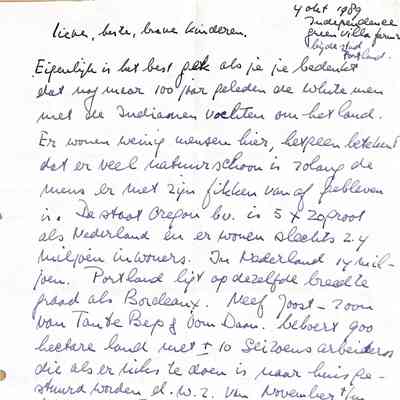 4 okt 1989
Independence
green villa farms
bij de stad
Portland.
lieve, beste, brave kinderen.
Eigenlijk is het best gek als je je bedenkt
dat nog maar 100 jaar geleden de white men
met de Indianen vochten om het land.
Er wonen weinig mensen hier, hetgeen betekent
dat er veel natuurschoon is zolang de
mens er met zijn fikken vanaf gebleven
is. De staat Oregon bv. is 5 x zo groot
als Nederland en er wonen slechts 2.4
miljoen inwoners. In Nederland 14 mil-
joen. Portland ligt op dezelfde breedte
graad als Bordeaux. Neef Joost - zoon
van Tante Bep & Oom Daan. beheert 900
hectare land met ± 10 seizoens arbeiders
die als er niks te doen is naar huis ge-
stuurd worden d.w.z. van November t/m